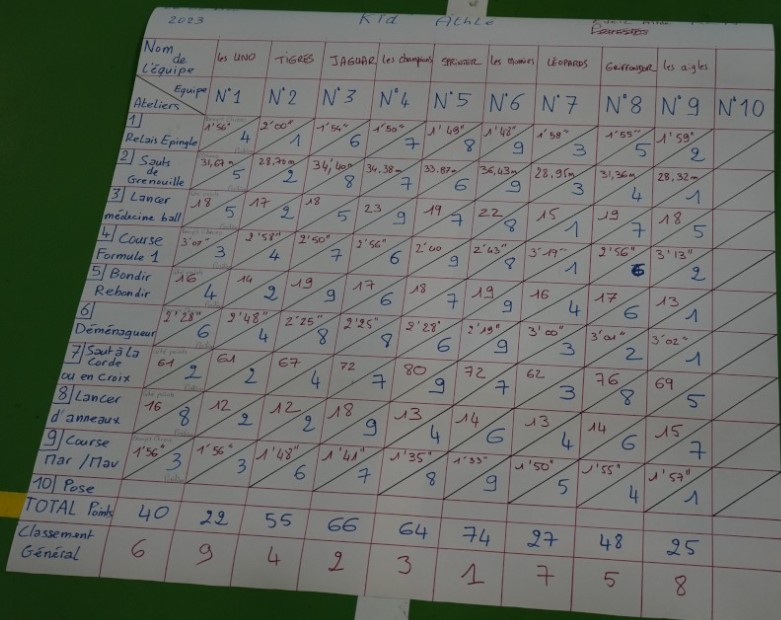 2023 Kid Athlé
Nom de l'équipe les UNO TIGRES JAGUAR les champions les minions LÉOPARDS les aigles
Equipe N°1 N°2 N°3 N°4 N°5 N°6 N°7 N°8 N°9 N°10
Ateliers
1 Relais Epingle 1'56" 4 2'00" 1 1'54" 6 1'50" 7 1'49" 8 1'48" 9 1'58" 3 1'55" 5 1'59" 2
2 Sauts de Grenouille 31,67m 5 28,70m 2 34,40m 8 34,38m 7 33,87m 6 36,43m 9 28,95m 3 31,36m 4 28,32m 1
3 Lancer médecine ball 18 5 17 2 18 5 23 9 19 7 22 8 15 1 19 7 18 5
4 Course Formule 1 3'07" 3 2'58" 4 2'50" 7 2'56" 6 2'40 9 2'43" 8 3'19" 1 2'56" 6 3'13" 2
5 Bondir Rebondir 16 4 14 2 19 9 17 6 18 7 19 9 16 4 17 6 13 1
6 Déménageur 2'28" 6 2'48" 4 2'25" 8 2'25" 8 2'28" 6 2'19" 9 3'00" 3 3'01" 2 3'02" 1
7 Saut à la Corde ou en Croix 61 2 61 2 67 4 72 7 80 9 72 7 62 3 76 8 69 5
8 Lancer d'anneaux 16 8 12 2 12 2 18 9 13 4 14 6 13 4 14 6 15 7
9 Course Mar / Mav 1'56" 3 1'56" 3 1'48" 6 1'41" 7 1'35" 8 1'33" 9 1'50" 5 1'55" 4 1'57" 1
10 Pose
TOTAL Points 40 22 55 66 64 74 27 48 25
Classement Général 6 9 4 2 3 1 7 5 8